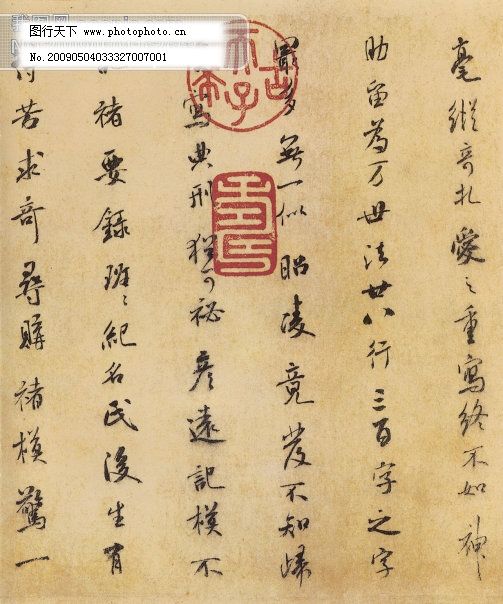 图行天下 www.photophoto.cn
No.20090504033327007001
毫縱奇札愛之重寫終不如神
助留為万世法廿八行三百字之字
最多無一似昭陵竟發不知歸
寫典刑猶可祕彥遠記模不
褚要錄班〻紀名氏後生有
苦求奇尋購褚模驚一